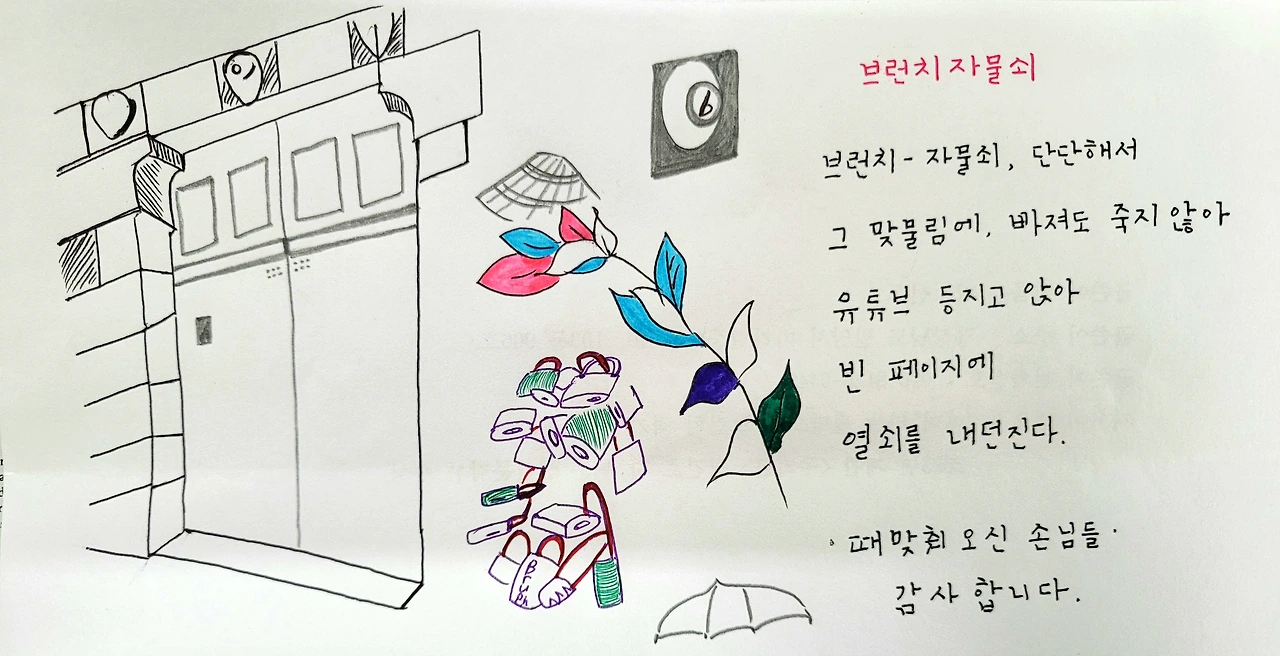 6
브런치자물쇠
브런치 - 자물쇠, 단단해서
그 맞물림에, 바져도 죽지 않아
유튜브 등지고 앉아
빈 페이지에
열쇠를 내던진다.
· 때맞춰 오신 손님들 ·
감사 합니다.